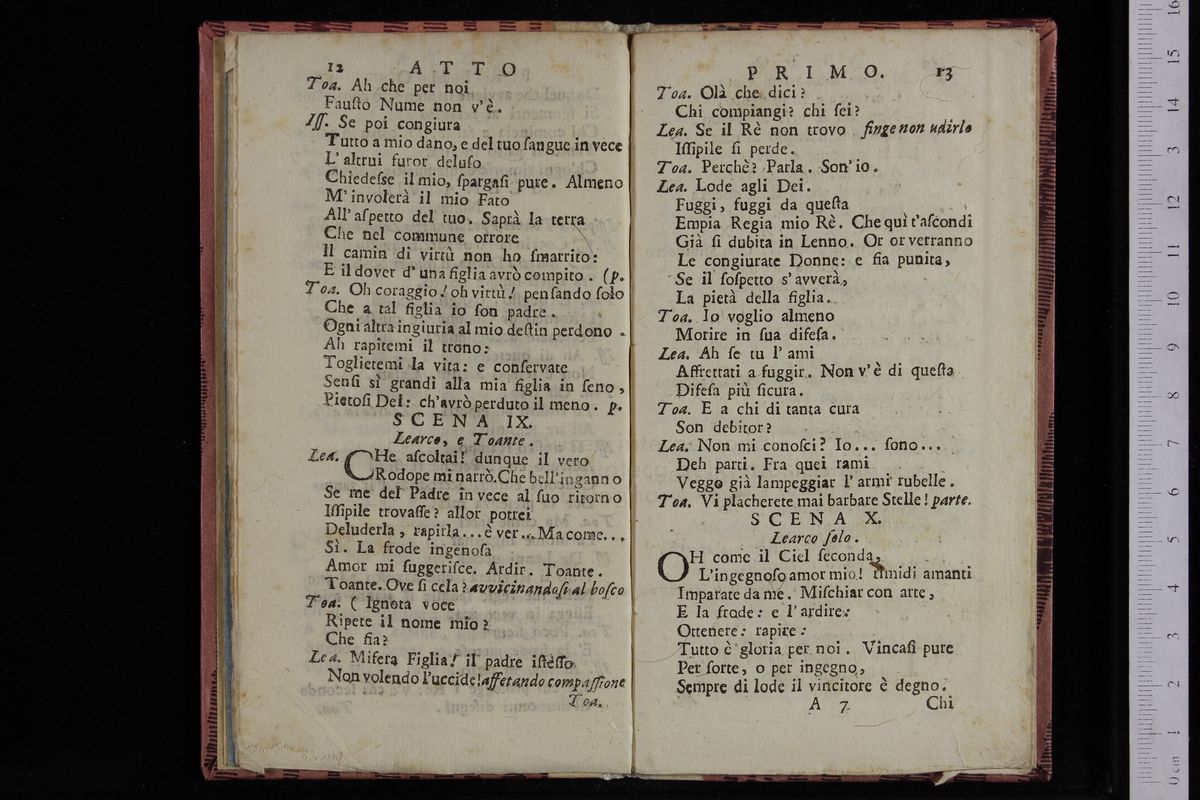 12 ATTO
Toa. Ah che per noi
Fauſto Nume non v'è.
Iſſ. Se poi congiura
Tutto a mio dano, e del tuo ſangue in vece
L'altrui furor deluſo
Chiedeſse il mio, ſpargaſi pure. Almeno
M'involerà il mio Fato
All'aſpetto del tuo. Saprà la terra
Che nel commune orrore
Il camin di virtù non ho ſmarrito:
E il dover d'una figlia avrò compito. (p.
Toa. Oh coraggio! oh virtù! penſando ſolo
Che a tal figlia io ſon padre.
Ogni altra ingiuria al mio deſtin perdono.
Ah rapitemi il trono:
Toglietemi la vita: e conſervate
Senſi sì grandi alla mia figlia in ſeno,
Pietoſi Dei: ch'avrò perduto il meno. p.
SCENA IX.
Learco, e Toante.
Lea. CHe aſcoltai! dunque il vero
Rodope mi narrò. Che bell'inganno
Se me del Padre in vece al ſuo ritorno
Iſſipile trovaſſe? allor potrei
Deluderla, rapirla... è ver... Ma come...
Sì. La frode ingenoſa
Amor mi ſuggeriſce. Ardir. Toante.
Toante. Ove ſi cela? avvicinandoſi al boſco
Toa. ( Ignota voce
Ripete il nome mio?
Che fia?
Lea. Miſera Figlia! il padre iſteſſo
Non volendo l'uccide! affetando compaſſione
Toa.
PRIMO. 13
Toa. Olà che dici?
Chi compiangi? chi ſei?
Lea. Se il Rè non trovo finge non udirlo
Iſſipile ſi perde.
Toa. Perchè? Parla. Son'io.
Lea. Lode agli Dei.
Fuggi, fuggi da queſta
Empia Regia mio Rè. Che quì t'aſcondi
Già ſi dubita in Lenno. Or or verranno
Le congiurate Donne: e fia punita,
Se il ſoſpetto s'avverà,
La pietà della figlia.
Toa. Io voglio almeno
Morire in ſua difeſa.
Lea. Ah ſe tu l'ami
Affrettati a fuggir. Non v'è di queſta
Difeſa più ſicura.
Toa. E a chi di tanta cura
Son debitor?
Lea. Non mi conoſci? Io... ſono...
Deh parti. Fra quei rami
Veggo già lampeggiar l'armi rubelle.
Toa. Vi placherete mai barbare Stelle! parte.
SCENA X.
Learco ſolo.
OH come il Ciel ſeconda,
L'ingegnoſo amor mio! timidi amanti
Imparate da me. Miſchiar con arte,
E la frode: e l'ardire:
Ottenere: rapire:
Tutto è gloria per noi. Vincaſi pure
Per ſorte, o per ingegno,
Sempre di lode il vincitore è degno.
A 7 Chi
0 cm 1 2 3 4 5 6 7 8 9 10 11 12 13 14 15 16